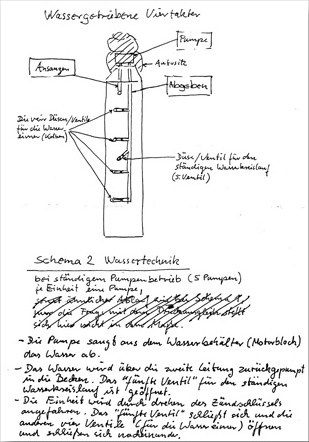 Wassergetriebene Viertakter
Pumpe
Ansaugen
Antwort
Abgeben
Die vier Düsen/Ventile
für die Wasser
eimer (Kolben)
Düse/Ventil für den
ständigen Wasserkreislauf
(5. Ventil)
Schema 2 Wassertechnik
bei ständigem Pumpenbetrieb (5 Pumpen)
je Einheit eine Pumpe,
- Die Pumpe saugt aus dem Wasserbehälter (Motorblock)
das Wasser ab.
- Das Wasser wird über die zweite Leitung zurückgepumpt
in die Becken. Das "fünfte Ventil" für den ständigen
Wasserkreislauf ist geöffnet.
- Die Einheit wird durch drehen des Zündschlüssels
angefahren. Das "fünfte Ventil" schließt sich und die
anderen vier Ventile (für die Wassereimer) öffnen
und schließen sich nacheinander.